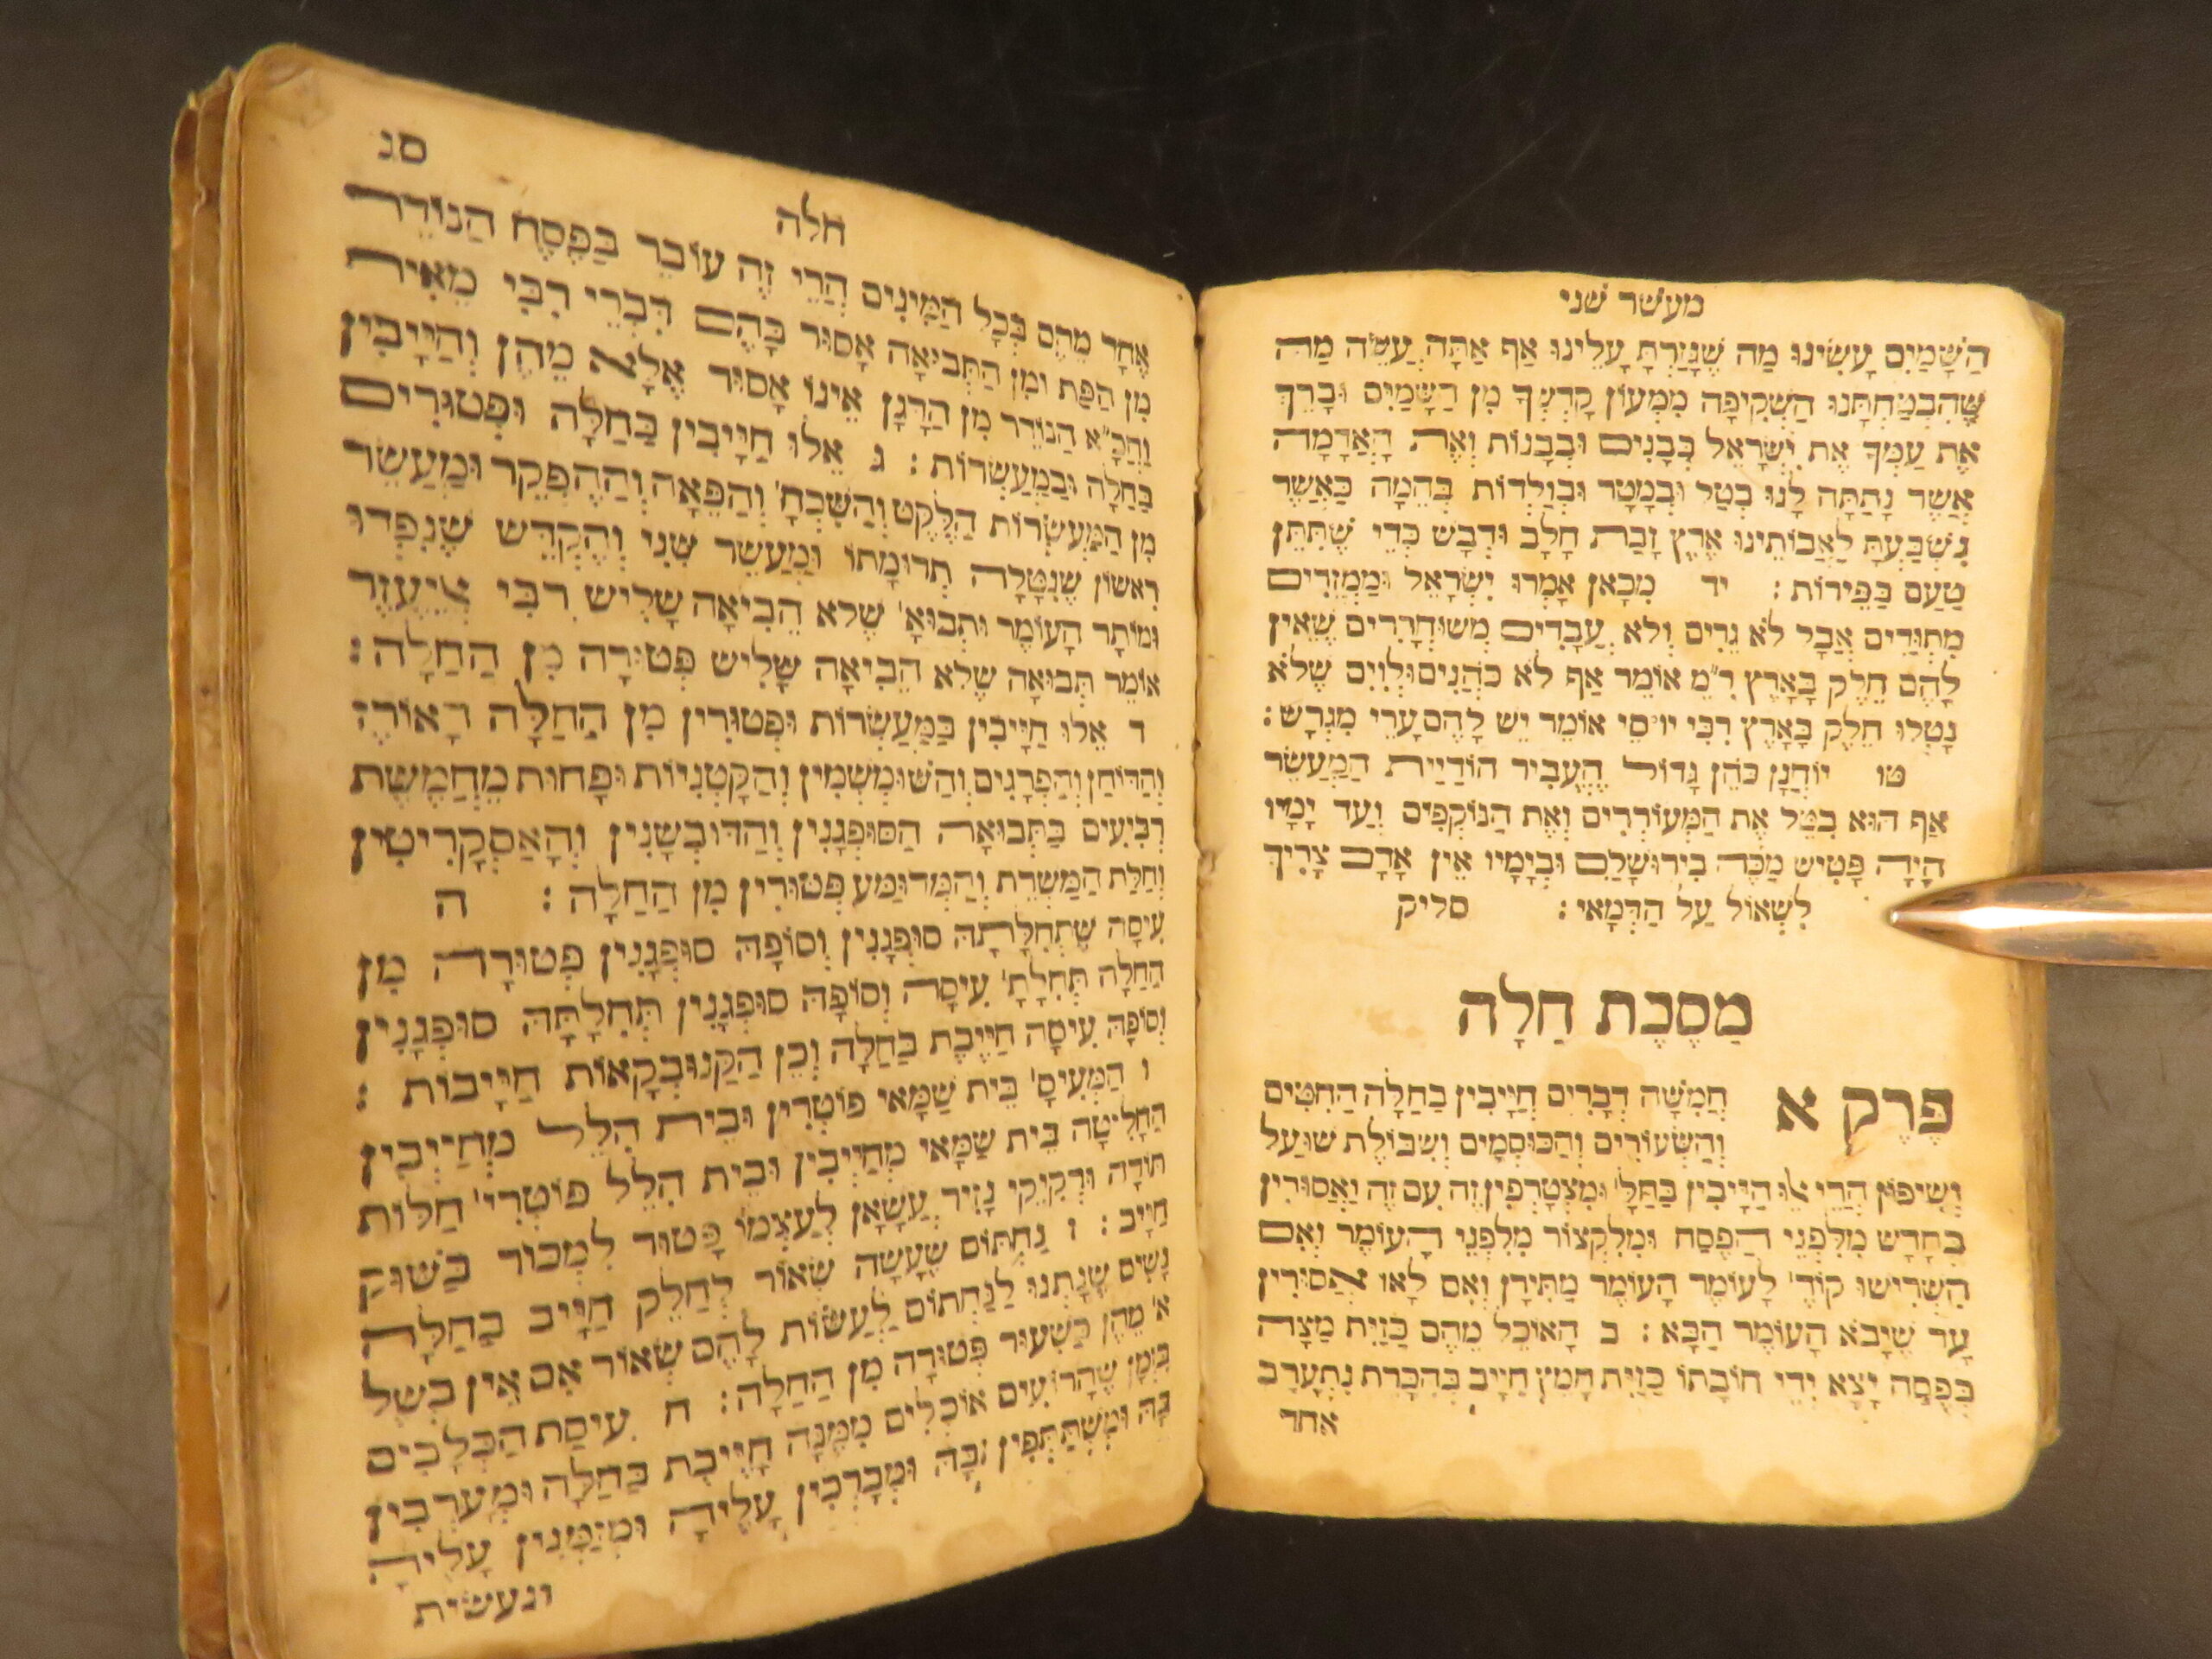 מעשר שני
הַשָּׁמַיִם עָשִׂינוּ מַה שֶׁגָּזַרְתָּ עָלֵינוּ אַף אַתָּה עֲשֵׂה מַה
שֶּׁהִבְטַחְתָּנוּ הַשְׁקִיפָה מִמְּעוֹן קָדְשְׁךָ מִן הַשָּׁמַיִם וּבָרֵךְ
אֶת עַמְּךָ אֶת יִשְׂרָאֵל בְּבָנִים וּבְבָנוֹת וְאֶת הָאֲדָמָה
אֲשֶׁר נָתַתָּה לָנוּ בְטַל וּבְמָטָר וּבְוַלְדוֹת בְּהֵמָה כַּאֲשֶׁר
נִשְׁבַּעְתָּ לַאֲבוֹתֵינוּ אֶרֶץ זָבַת חָלָב וּדְבָשׁ כְּדֵי שֶׁתִּתֵּן
טַעַם בַּפֵּירוֹת : יד מִכָאן אָמְרוּ יִשְׂרָאֵל וּמַמְזֵרִים
מִתְוַדִּים אֲבָל לֹא גֵרִים וְלֹא עֲבָדִים מְשׁוּחְרָרִים שֶׁאֵין
לָהֶם חֵלֶק בָּאָרֶץ ר״מ אוֹמֵר אַף לֹא כֹּהֲנִים וּלְוִיִּם שֶׁלֹּא
נָטְלוּ חֵלֶק בָּאָרֶץ רַבִּי יוֹסֵי אוֹמֵר יֵשׁ לָהֶם עָרֵי מִגְרָשׁ :
טו יוֹחָנָן כֹּהֵן גָּדוֹל הֶעֱבִיר הוֹדָיַית הַמַּעֲשֵׂר
אַף הוּא בִטֵּל אֶת הַמְּעוֹרְרִים וְאֶת הַנּוֹקְפִים וְעַד יָמָיו
הָיָה פָּטִישׁ מַכֶּה בִירוּשָׁלַם וּבְיָמָיו אֵין אָדָם צָרִיךְ
לִשְׁאוֹל עַל הַדְּמָאי : סליק
מַסֶּכֶת חַלָּה
פֶּרֶק א חֲמִשָּׁה דְבָרִים חַיָּיבִין בַּחַלָּה הַחִטִּים
וְהַשְּׂעוֹרִים וְהַכּוּסְמִים וְשִׁבּוֹלֶת שׁוּעָל
וְשִׁיפוֹן הֲרֵי אֵלּוּ חַיָּיבִין בַּחַלָּ׳ וּמִצְטָרְפִין זֶה עִם זֶה וַאֲסוּרִין
בְּחָדָשׁ מִלִּפְנֵי הַפֶּסַח וּמִלִּקְצוֹר מִלִּפְנֵי הָעוֹמֶר וְאִם
הִשְׁרִישׁוּ קוֹדֶ׳ לָעוֹמֶר הָעוֹמֶר מַתִּירָן וְאִם לָאו אֲסוּרִין
עַד שֶׁיָּבֹא הָעוֹמֶר הַבָּא : ב הָאוֹכֵל מֵהֶם כַּזַּיִת מַצָּה
בְּפֶסַח יָצָא יְדֵי חוֹבָתוֹ כַּזַּיִת חָמֵץ חַיָּיב בְּהִכָּרֵת נִתְעָרֵב
אחד
סג
חלה
אֶחָד מֵהֶם בְּכָל הַמִּינִים הֲרֵי זֶה עוֹבֵר בַּפֶּסַח הַנּוֹדֵר
מִן הַפַּת וּמִן הַתְּבוּאָה אָסוּר בָּהֶם דִּבְרֵי רִבִּי מֵאִיר
וַחֲכָ״א הַנּוֹדֵר מִן הַדָּגָן אֵינוֹ אָסוּר אֶלָּא מֵהֶן וְחַיָּיבִין
בַּחַלָּה וּבַמַּעַשְׂרוֹת : ג אֵלּוּ חַיָּיבִין בַּחַלָּה וּפְטוּרִים
מִן הַמַּעַשְׂרוֹת הַלֶּקֶט וְהַשִּׁכְחָ׳ וְהַפֵּאָה וְהַהֶפְקֵר וּמַעֲשֵׂר
רִאשׁוֹן שֶׁנִּטְּלָה תְרוּמָתוֹ וּמַעֲשֵׂר שֵׁנִי וְהֶקְדֵּשׁ שֶׁנִּפְדּוּ
וּמוֹתַר הָעוֹמֶר וּתְבוּאָ׳ שֶׁלֹּא הֵבִיאָה שָׁלִישׁ רִבִּי אֱלִיעֶזֶר
אוֹמֵר תְּבוּאָה שֶׁלֹּא הֵבִיאָה שָׁלִישׁ פְּטוּרָה מִן הַחַלָּה :
ד אֵלּוּ חַיָּיבִין בַּמַּעַשְׂרוֹת וּפְטוּרִין מִן הַחַלָּה הָאוֹרֶז
וְהַדּוֹחַן וְהַפְּרָגִים וְהַשּׁוּמְשְׁמִין וְהַקִּטְנִיּוֹת וּפָחוּת מֵחֲמֵשֶׁת
רְבִיעִים בַּתְּבוּאָה הַסּוּפְגָּנִין וְהַדּוּבְשָׁנִין וְהָאַסְקְרִיטִין
וְחַלַּת הַמַּשְׂרֵת וְהַמְּדוּמָּע פְּטוּרִין מִן הַחַלָּה : ה
עִיסָה שֶׁתְּחִלָּתָהּ סוּפְגָּנִין וְסוֹפָהּ סוּפְגָּנִין פְּטוּרָה מִן
הַחַלָּה תְּחִלָּתָ׳ עִיסָה וְסוֹפָהּ סוּפְגָּנִין תְּחִלָּתָהּ סוּפְגָּנִין
וְסוֹפָהּ עִיסָה חַיֶּיבֶת בַּחַלָּה וְכֵן הַקַּנּוּבְקָאוֹת חַיָּיבוֹת :
ו הַמְּעִיסָ׳ בֵּית שַׁמָּאי פוֹטְרִין וּבֵית הִלֵּל מְחַיְּיבִין
הַחֲלִיטָה בֵּית שַׁמָּאי מְחַיְּיבִין וּבֵית הִלֵּל פּוֹטְרִי׳ חַלּוֹת
תּוֹדָה וּרְקִיקֵי נָזִיר עֲשָׂאָן לְעַצְמוֹ פָּטוּר לִמְכּוֹר בַּשּׁוּק
חַיָּיב : ז נַחְתּוֹם שֶׁעָשָׂה שְׂאוֹר לְחַלֵּק חַיָּיב בַּחַלָּה
נָשִׁים שֶׁנָּתְנוּ לַנַּחְתּוֹם לַעֲשׂוֹת לָהֶם שְׂאוֹר אִם אֵין בְּשֶׁל
א׳ מֵהֶן כַּשִּׁעוּר פְּטוּרָה מִן הַחַלָּה : ח עִיסַת הַכְּלָבִים
בִּזְמַן שֶׁהָרוֹעִים אוֹכְלִים מִמֶּנָּה חַיֶּיבֶת בַּחַלָּה וּמְעָרְבִין
בָּהּ וּמִשְׁתַּתְּפִין בָּהּ וּמְבָרְכִין עָלֶיהָ וּמְזַמְּנִין עָלֶיהָ
ונעשית